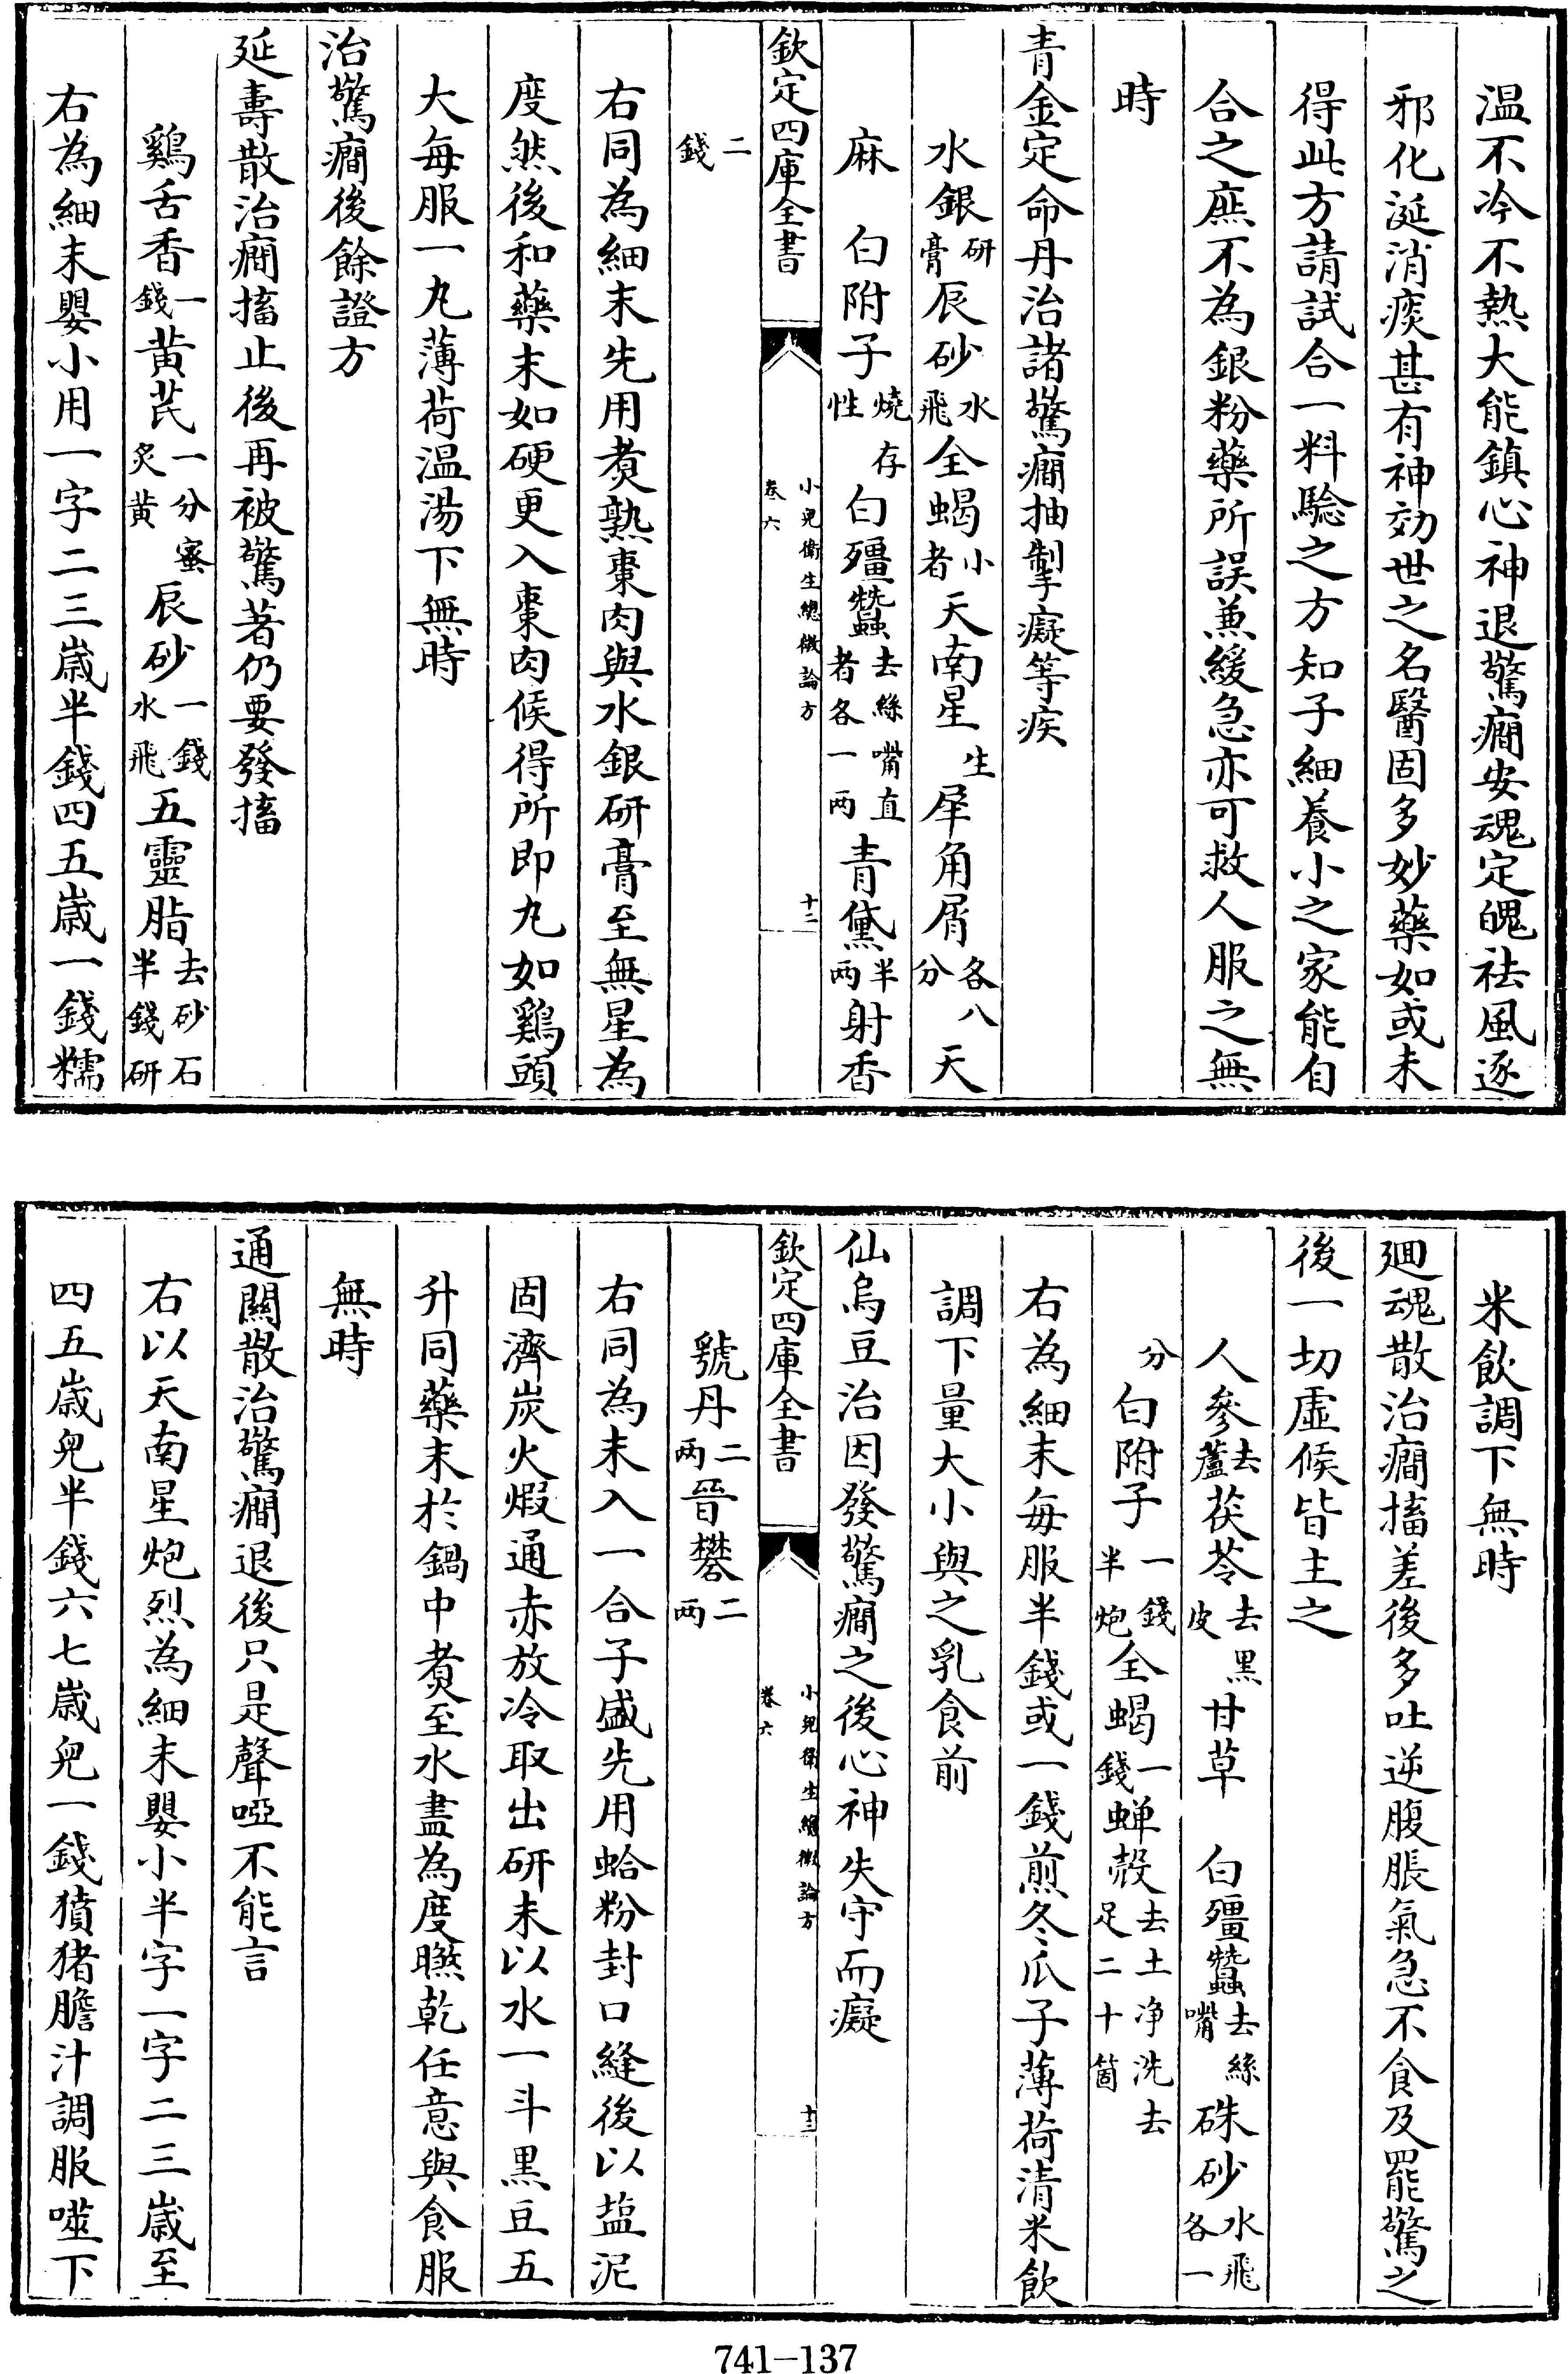 温不冷不熱大能鎮心神退驚癎安魂定魄祛風逐
邪化涎消痰甚有神効世之名醫固多妙藥如或未
得此方請試合一料驗之方知子細養小之家能自
合之庶不為銀粉藥所誤兼緩急亦可救人服之無
時
青金定命丹治諸驚癎抽掣癡等疾
水銀研膏辰砂水飛全蝎小者天南星生犀角屑各八分天
麻　白附子燒存性白殭蠶去絲嘴直者各一兩青黛半兩射香
欽定四庫全書　小兒衛生總微論方卷六　十二
二錢
右同為細末先用煮熟棗肉與水銀研膏至無星為
度然後和藥末如硬更入棗肉候得所即丸如鷄頭
大每服一丸薄荷温湯下無時
治驚癎後餘證方
延壽散治癎搐止後再被驚著仍要發搐
鷄舌香一錢黄芪一分蜜炙黄辰砂一錢水飛五靈脂去砂石半錢研
右為細末嬰小用一字二三歳半錢四五歳一錢糯
米飲調下無時
廻魂散治癎搐差後多吐逆腹脹氣急不食及罷驚之
後一切虛候皆主之
人參去蘆茯苓去黑皮甘草　白殭蠶去絲嘴硃砂水飛各一
分白附子一錢半炮全蝎一錢蝉殻去土净洗去足二十箇
右為細末每服半錢或一錢煎冬瓜子薄荷清米飲
調下量大小與之乳食前
仙烏豆治因發驚癎之後心神失守而癡
欽定四庫全書　小兒衛生總微論方卷六　十三
號丹二兩晉礬二兩
右同為末入一合子盛先用蛤粉封口縫後以盐泥
固濟炭火煆通赤放冷取出研末以水一斗黒豆五
升同藥末於鍋中煮至水盡為度㬠乾任意與食服
無時
通關散治驚癎退後只是聲啞不能言
右以天南星炮烈為細末嬰小半字一字二三歳至
四五歳兒半錢六七歳兒一錢獖猪膽汁調服噬下
741—137